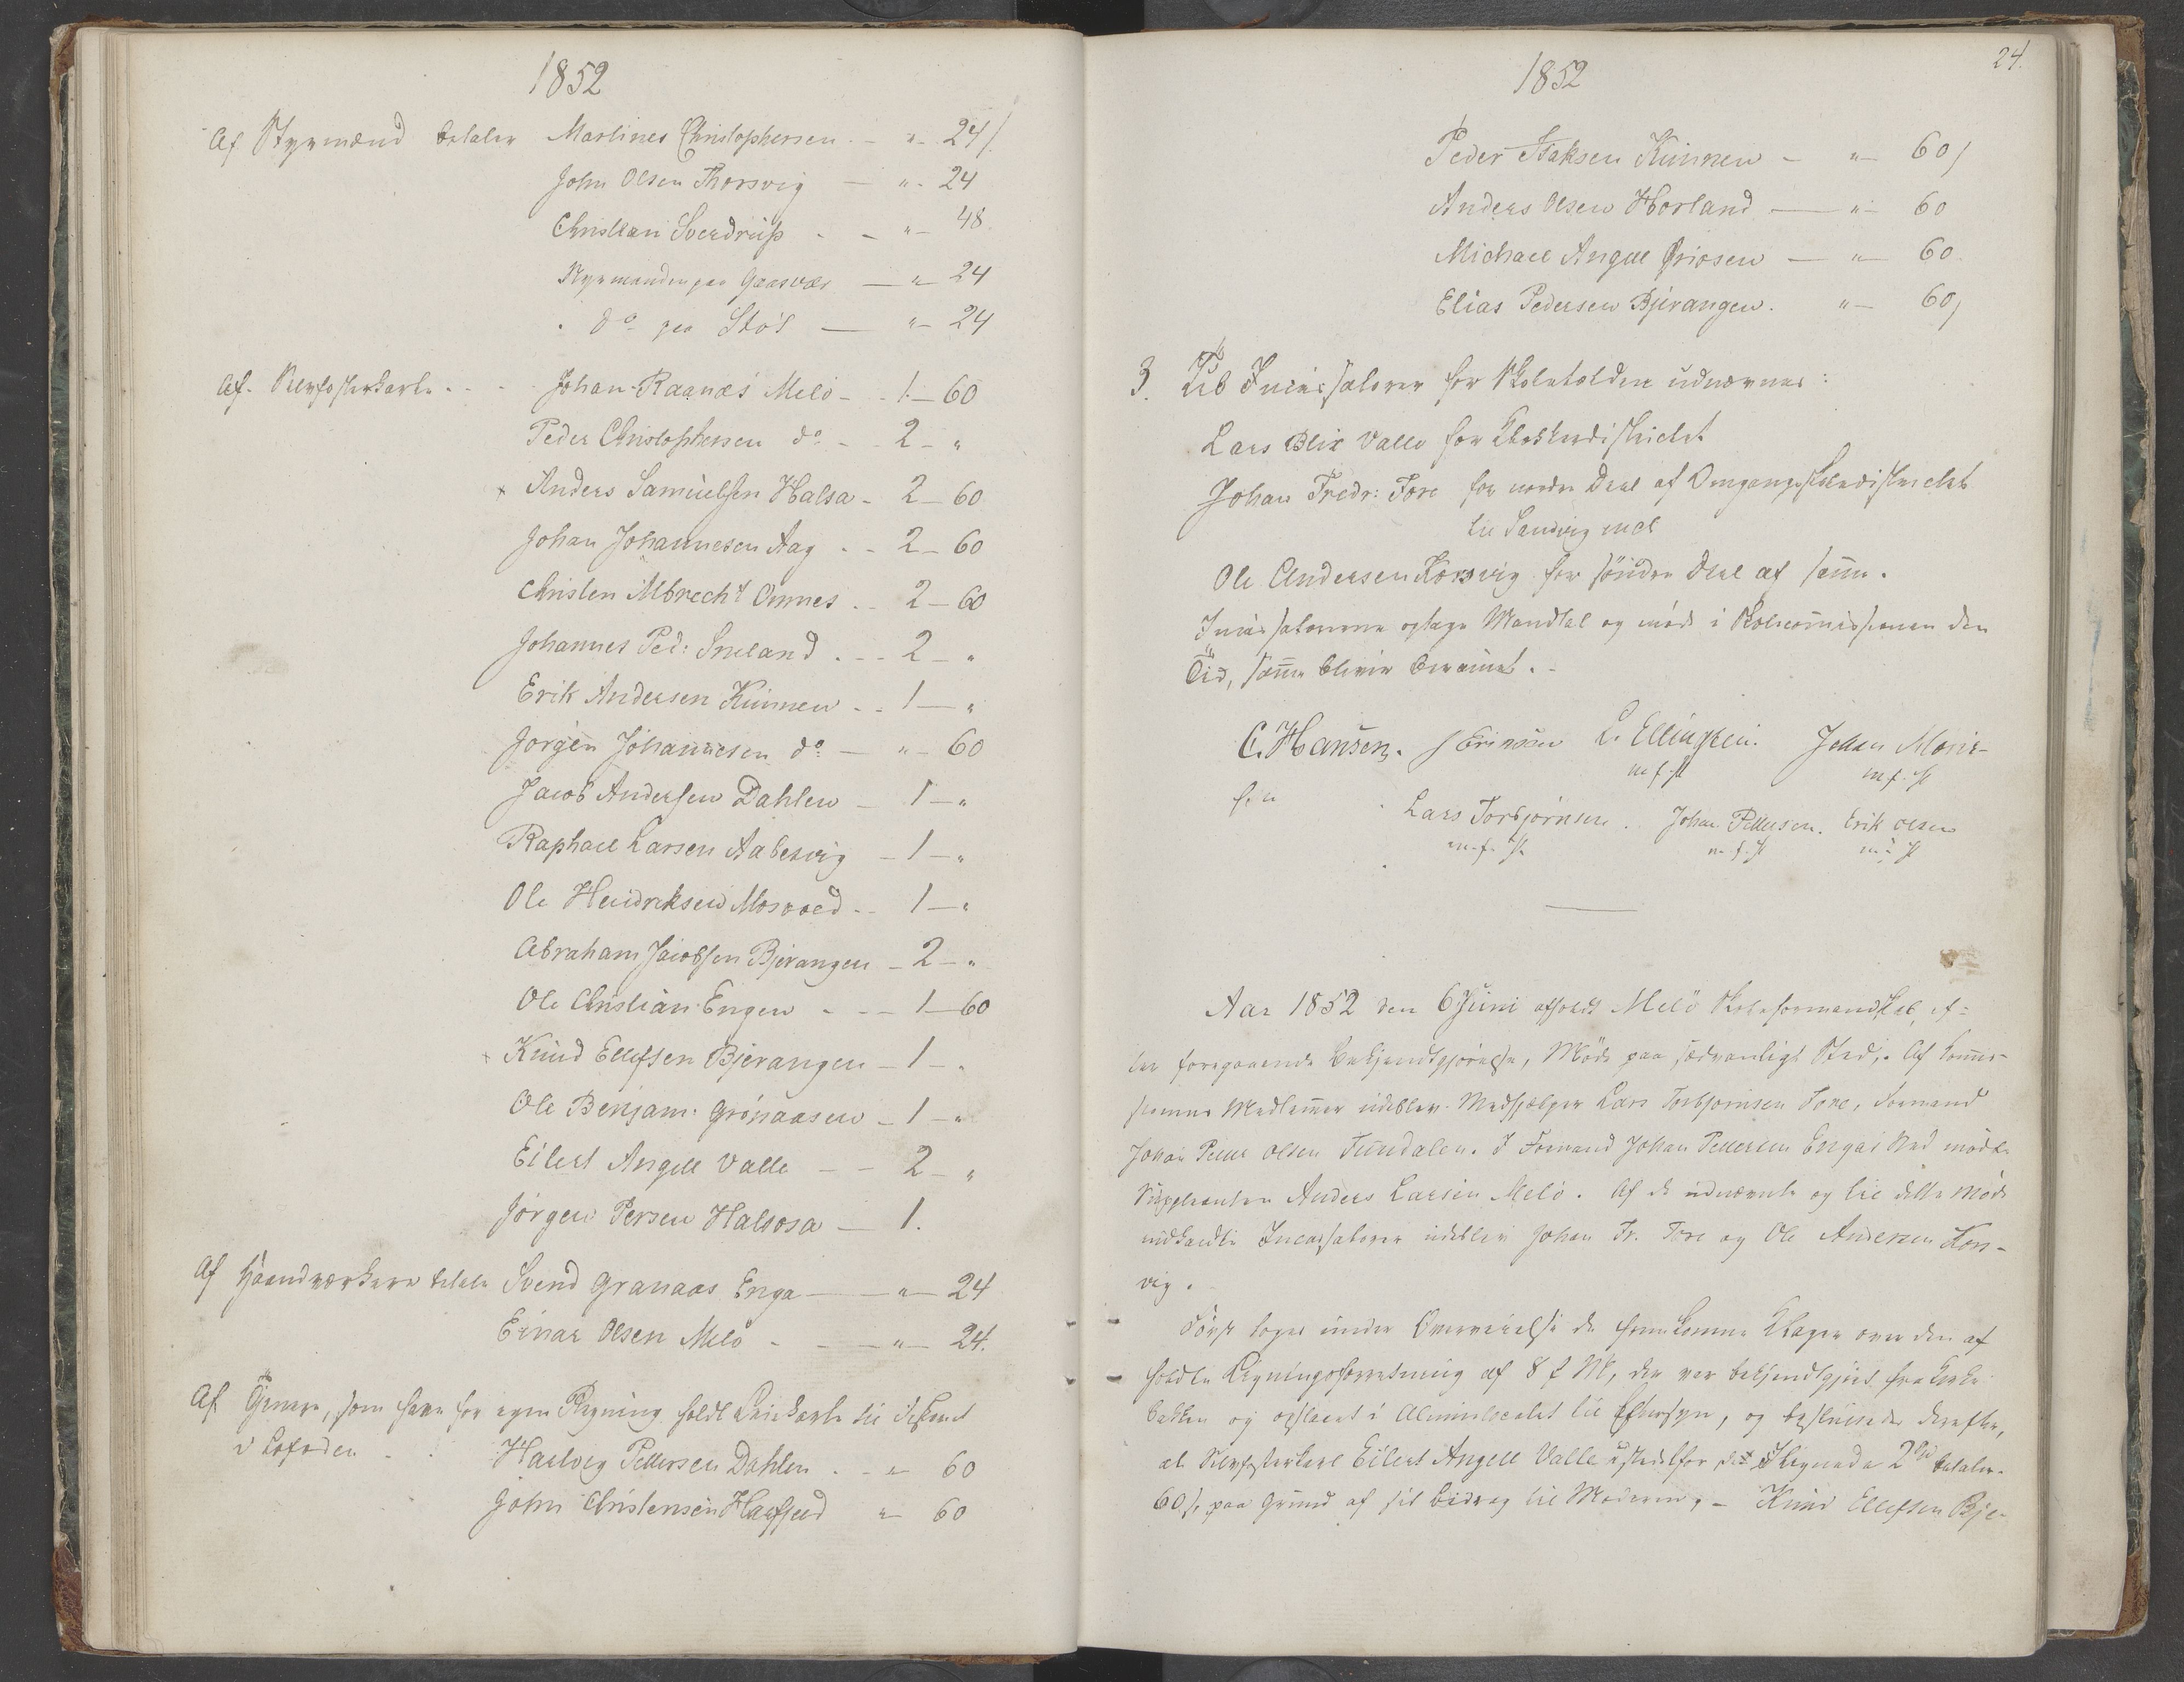 1852
Af Styrmænd betaler Martines Christophersen - " - 24 ß.
John Olsen Thorsvig — " - 24
Christian Sverdrup - - " - 48
Styrmanden paa Gaasvær — " - 24
do paa Stöt — " - 24
Af Selvfosterkarle - - Johan Raanæs Melö - - 1 - 60
Peder Christophersen do - - 2 - "
x Anders Samuelsen Halsa - 2 - 60
Johan Johannesen Aag - - 2 - 60
Christen Albrecht Omnes - - 2 - 60
Johannes Ped: Sneland - - - 2 - "
Erik Andersen Kunnen - - 1 - "
Jörgen Johannesen do — " - 60
Jacob Andersen Dahlen - 1 - "
Raphael Larsen Aabesvig - 1 - "
Ole Hendriksen Mosvold - - 1 - "
Abraham Jacobsen Bjerangen - 2 - "
Ole Christian Engen - - - 1 - 60
x Knud Ellefsen Bjerangen - 1 - "
Ole Benjam: Grönaasen - 1 - "
Eilert Angell Valle - - 2 - "
Jörgen Persen Halsosa — 1.
Af Haandværkere betale Svend Granaas Enga — " - 24
Einar Olsen Melö - - " - 24.
Af Gjenere, som have for egen Regning holdt Leiekarle til Fiskeriet
i Lofoden - - Hartvig Pettersen Dahlen - - " 60
John Christensen " 60
24.
1852
Peder Isaksen Kunnen - " - 60 ß
Anders Olsen Horland — " - 60
Michael Angell Öriosen — " - 60
Elias Pedersen Bjerangen. " - 60 ß
3. Til Incassatorer for Skoletolden udnævnes:
Lars Blix Valle for Klokkerdistrictet
Johan Fredr: Fore for nordre Deel af Omgangsskoledistrictet
til Sandvig incl
Ole Andersen Korsvig for söndre Deel af samme.
Incassatorerne optage Mandtal og möde i Skolecommissionen den
Tid, samme bliver berammet. -
C. Hansen. J Erinsen L. Ellingsen. Johan Monis-
m. f. P m. f. P
sen Lars Torbjörnsen. Johan Pettersen. Erik Olsen
m. f. P. m. f. P m. f. P
Aar 1852 den 6 Juni afholdt Melö Skoleformandskab, ef-
ter foregaaende Bekjendtgjörelse, Möde paa sædvanligt Sted. Af Commis-
sionens Medlemmer udeblev Medhjælper Lars Torbjörnsen Fore, Formand
Johan Petter Olsen Tundalen. I Formand Johan Pettersen Engas Sted mödte
Suppleanten Anders Larsen Melö. Af de udnævnte og til dette Möde
indkaldte Incassatorer udeblev Johan Fr. Fore og Ole Andersen Kors-
vig.
Först toges under Overveielse de fremkomne Klager over den af-
holdte Ligningsforretning af 8 f M, der var bekjendtgjort fra Kirke-
bakken og opslaaet i Almindelocalet til Eftersyn, og besluttedes derefter,
at Selvfosterkarl Eilert Angell Valle istedetfor det ilignede 2 betaler
60 ß. paa Grund af sit Bidrag til Moderen, - Knud Ellefsen Bje-